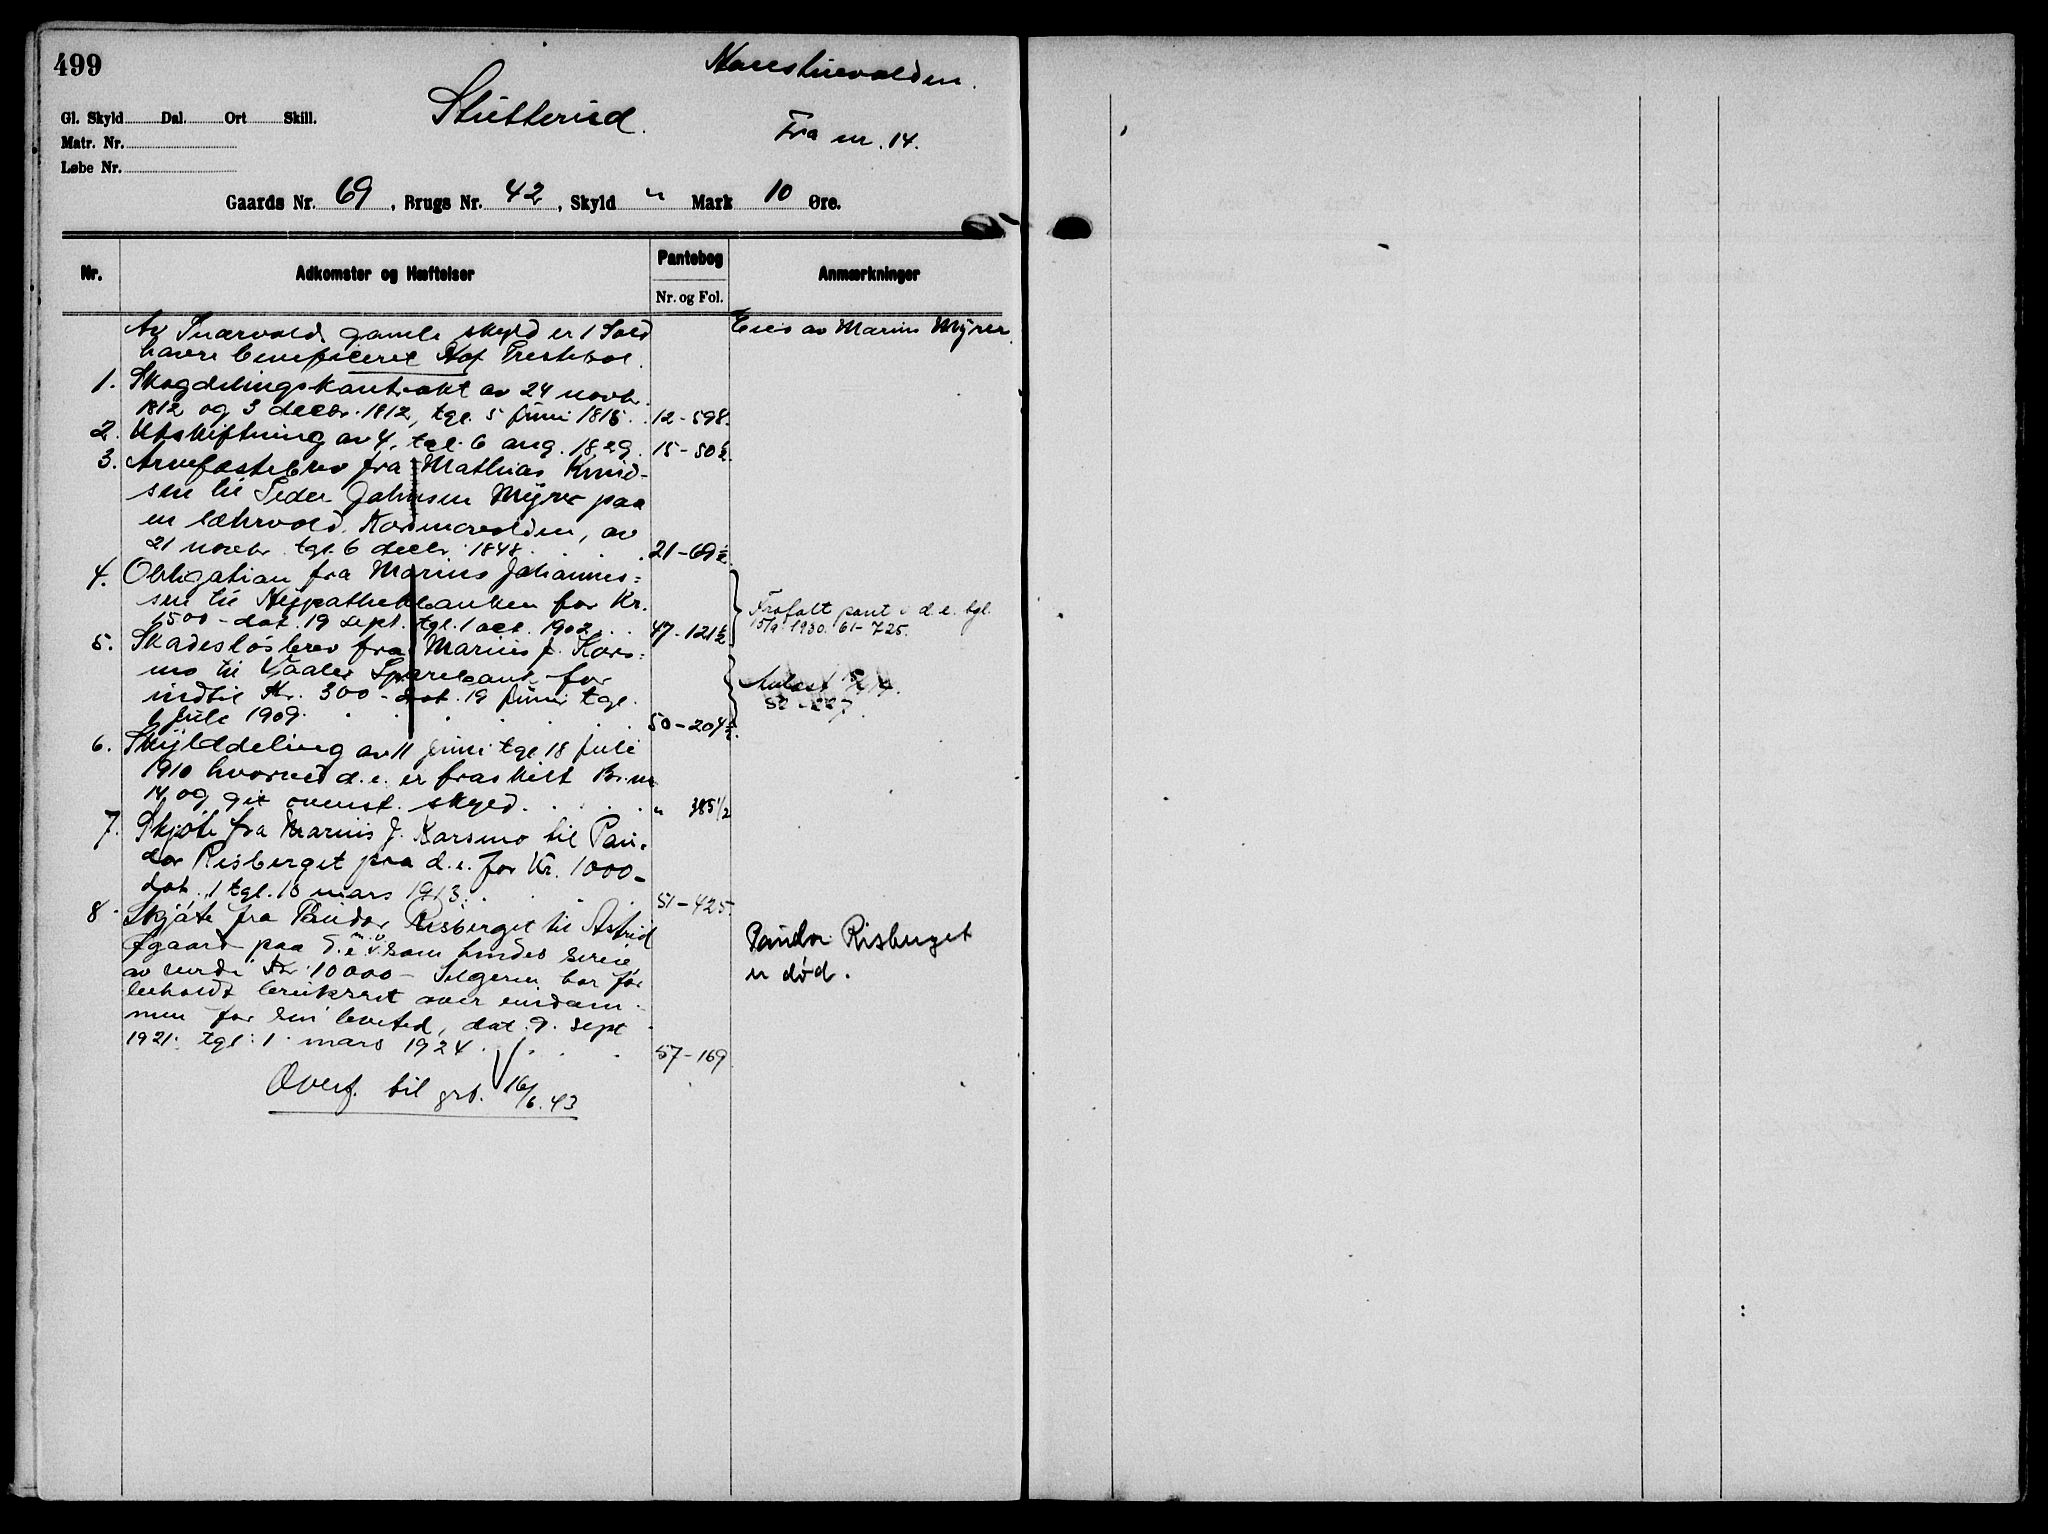 499
Stutterud.
Fra nr. 14.
Gl. Skyld Dal. Ort Skill.
Matr. Nr.
Løbe Nr.
Gaards Nr. 69, Brugs Nr. 42, Skyld " Mark 10 Øre.
Nr. Adkomster og Hæftelser Pantebog Nr. og Fol. Anmærkninger
gamle skyld er 1 Sold
havre beneficeret Hof Prestebol.
Eies av Marius Myrer.
1. Skogdelingskontrakt av 24 novbr.
1812 og 3 decbr. 1812, tgl. 5 juni 1815. 12-598.
2. Utskiftning av 4. tgl. 6 aug. 1829. 15-50½.
3. Arvefæstebrev fra Mathias Knud-
sen til Peder Johnsen Myrer paa
en , av
21 novbr. tgl. 6 decbr. 1848. 21-69½.
4. Obligation fra Marius Johannes-
sen til Hypothekbanken for Kr.
1500 - dat. 19 sept. tgl. 1 oct. 1902. 47-121½
Frafalt pant i d.e. tgl.
15/9 1930. 61-725.
5. Skadesløsbrev fra Marius J. Kors-
mo til Vaaler Sparebank for
indtil Kr. 300 - dat. 19 juni tgl.
1 juli 1909. 50-204½.
Avlest
52-227.
6. Skylddeling av 11 juni tgl. 18 juli
1910 hvorved d.e. er fraskilt Br.nr
14 og git ovenst. skyld. " 385 1/2
7. Skjøte fra Marius J. Korsmo til Pau-
dor Risberget paa d.e. for Kr. 1000-
dat. 1 tgl. 10 mars 1913. 51-425.
8. Skjøte fra Paudor Risberget til Astrid
paa d.e. som hendes særeie
av verdi Kr. 10000 - Selgeren har for-
beholdt bruksret over eiendom-
men for sin levetid, dat. 9. sept
1921. tgl. 1. mars 1924. 57-169
Paudor Risberget
er død.
Overf. til grb. 16/6.43